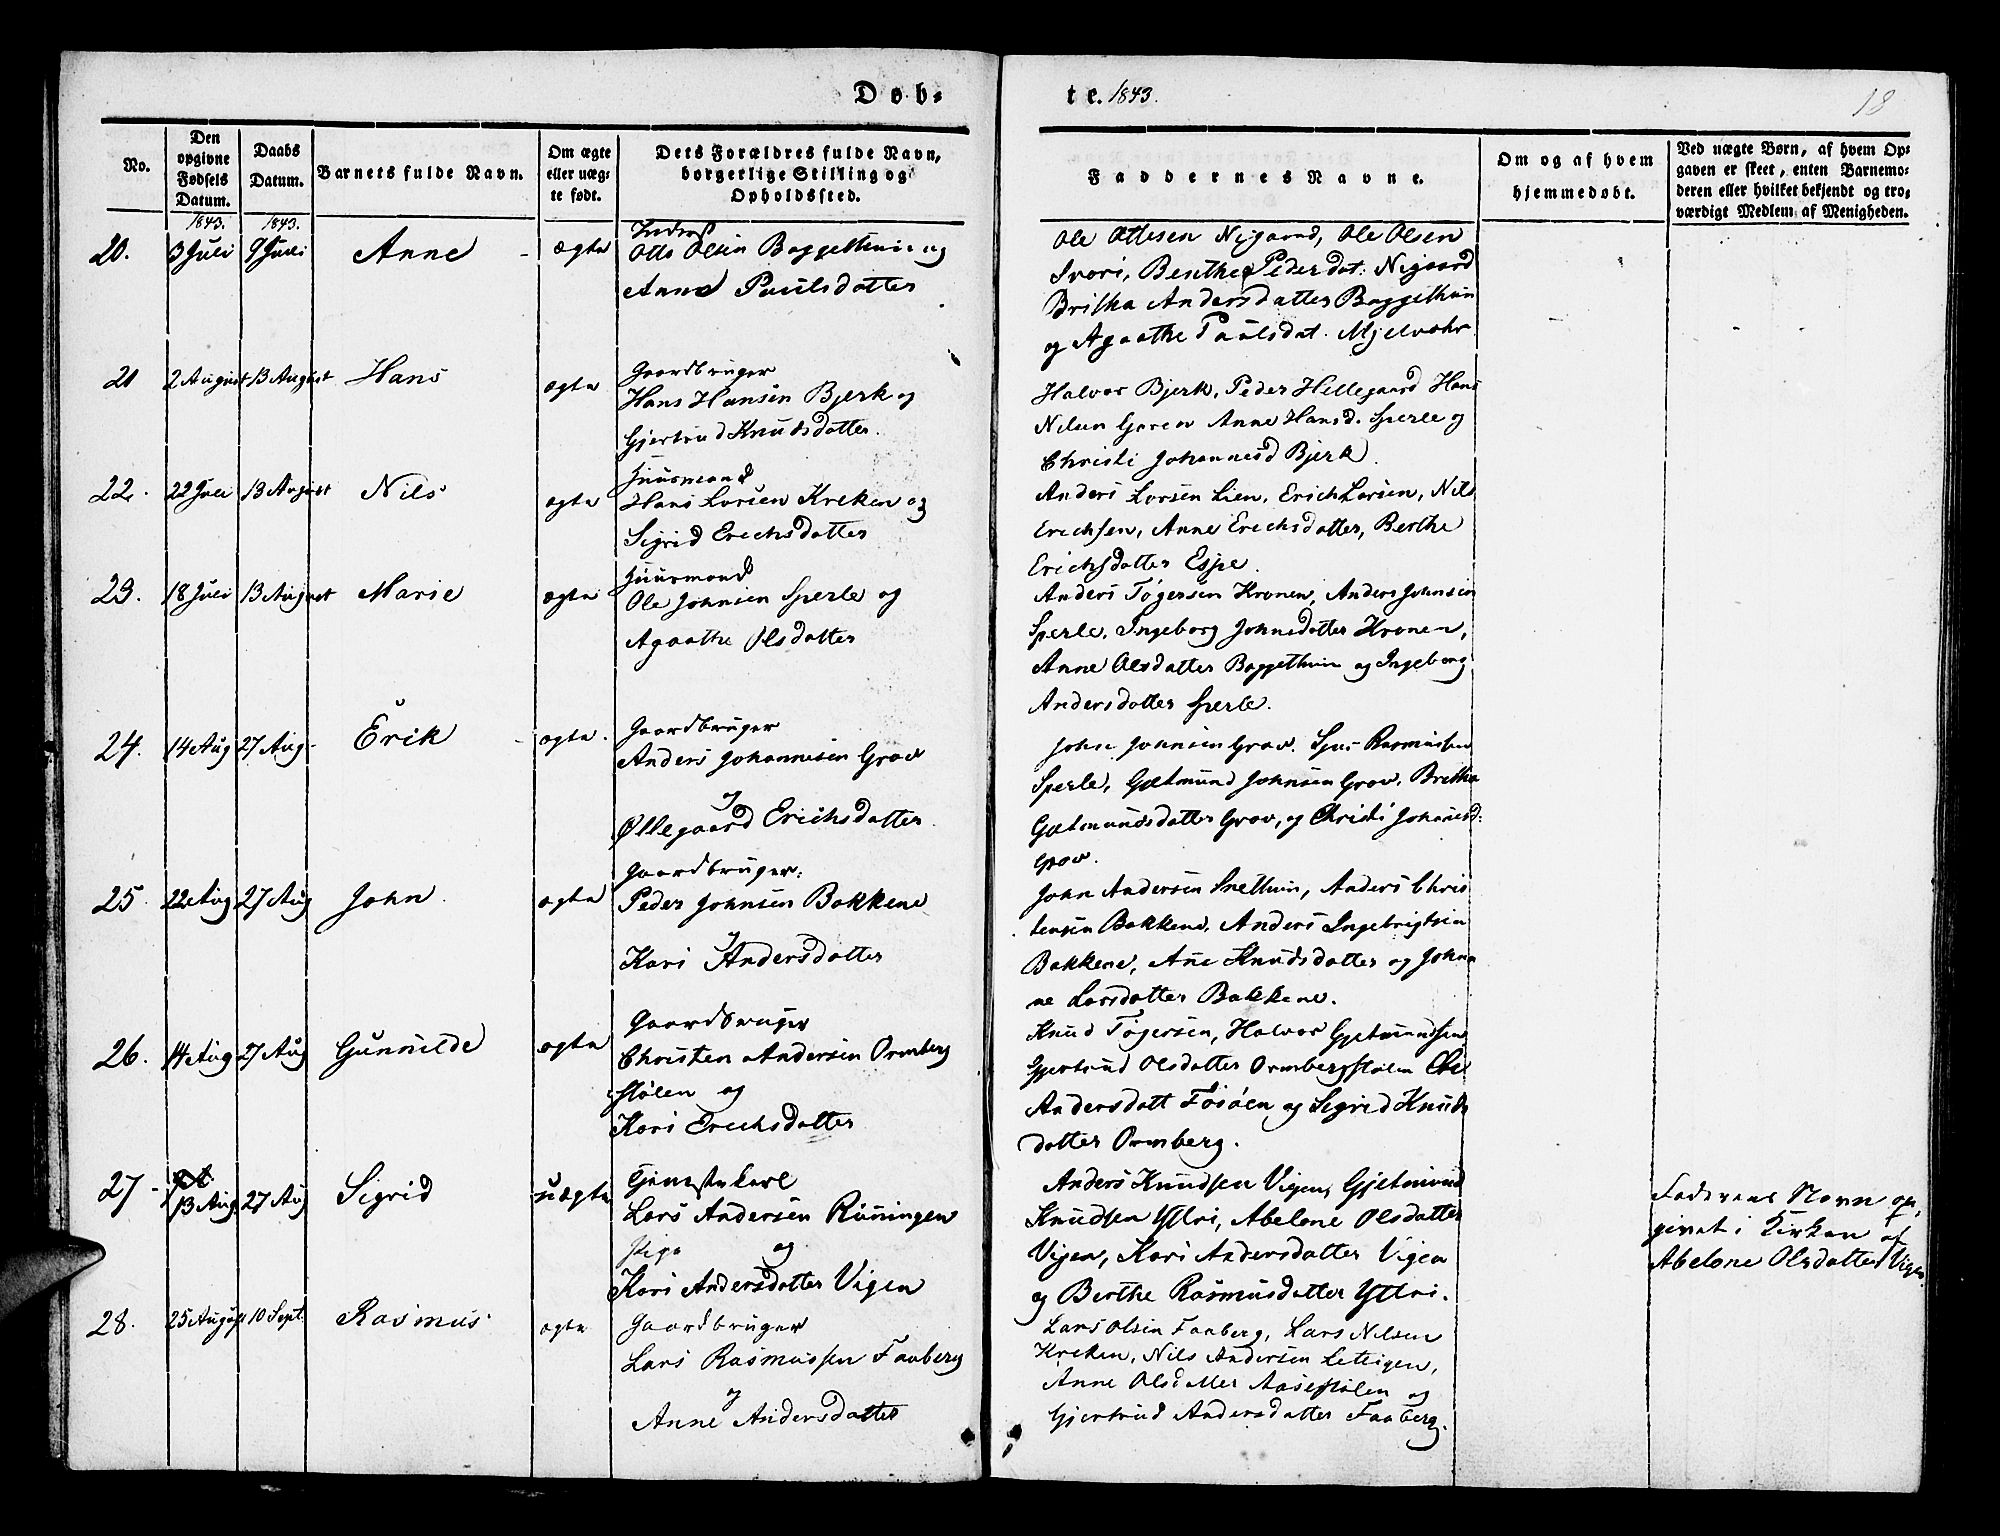 Døb-
te. 1843.
18
No.
Den opgivne Fødsels Datum.
Daabs Datum.
Barnets fulde Navn.
Om ægte eller uægte født.
Dets Forældres fulde Navn, borgerlige Stilling og Opholdssted.
Faddernes Navne.
Om og af hvem hjemmedøbt.
Ved uægte Børn, af hvem Opgaven er skeet, enten Barnemoderen eller hvilket bekjendt og troværdigt Medlem af Menigheden.
1843. 1843.
20. 3 Juli 9 Juli Anne ægte
Otto Olsen Baggethun og
Anne Paulsdatter
Ole Ottesen Nigaard, Ole Olsen
Svori, Berthe Pedersdat: Nigaard
Britha Andersdatter Baggethun
og Agaathe Paulsdat. Mjelvahr
21 2 August 13 August Hans ægte
Gaardbruger
Hans Hansen Bjerk og
Gjertrud Knudsdatter.
Halvor Bjerk, Peder Hillegaard Hans
Nilsen Garen Anne Hansd. Sperle og
Christi Johannesd Bjerk.
22. 22 Juli 13 August Nils ægte
Huusmand
Hans Larsen Kreken og
Sigrid Erichsdatter
Anders Larsen Lien, Erich Larsen, Nils
Erichsen, Anne Erichsdatter, Berthe
Erichsdatter Espe.
23. 18 Juli 13 August Marie ægte
Huusmand
Ole Johnsen Sperle og
Agaathe Olsdatter
Anders Tøgersen Kronen, Anders Johnsen
Sperle, Ingeborg Johnsdatter Kronen,
Anne Olsdatter Baggethun og Ingeborg
Andersdatter Sperle.
24. 14 Aug 27 Aug Erik ægte.
Gaardbruger
Anders Johannesen Grov
og
Øllegaard Erichsdatter.
John Johnsen Grov. Rasmussen
Sperle, Gjetmund Johnsen Grov, Britha
Gjetmundsdatter Grov, og Christi Johanesd:
Grov.
25. 22 Aug 27 Aug John. ægte
Gaardbruger:
Peder Johnsen Bakkene
og
Kari Andersdatter
John Andersen Snethun, Anders Chris
tensen Bakkene, Anders Ingebrigtsen
Bakkene, Ane Knudsdatter og Johan
ne Larsdatter Bakkene.
26. 14 Aug 27 Aug Gunnilde ægte
Gaardbruger
Christen Andersen Ormberg
stølen og
Kari Erichsdatter
Knud Tøgersen, Halvor Gjetmundsen
Gjertrud Olsdatter Ormbergstølen
Andersdatt Fosøen og Sigrid Knuds
datter Ormberg.
27 13 Aug 27 Aug Sigrid uægte
Tjenestekarl
Lars Andersen Rønningen
Pige og
Kari Andersdatter Vigen
Anders Knudsen Vigen, Gjetmund
Knudsen Yttri, Abelone Olsdatter
Vigen, Kari Andersdatter Vigen
og Berthe Rasmusdatter Yttri.
Faderens Navn op
givet i Kirken af
Abelone Olsdatter Vigen
28. 25 August 10 Sept. Rasmus ægte
Gaardbruger
Lars Rasmussen Faaberg
og
Anne Andersdatter
Lars Olsen Faaberg, Lars Nilsen
Kreken, Nils Andersen Leteigen,
Anne Olsdatter Aasestølen og
Gjertrud Andersdatter Faaberg.